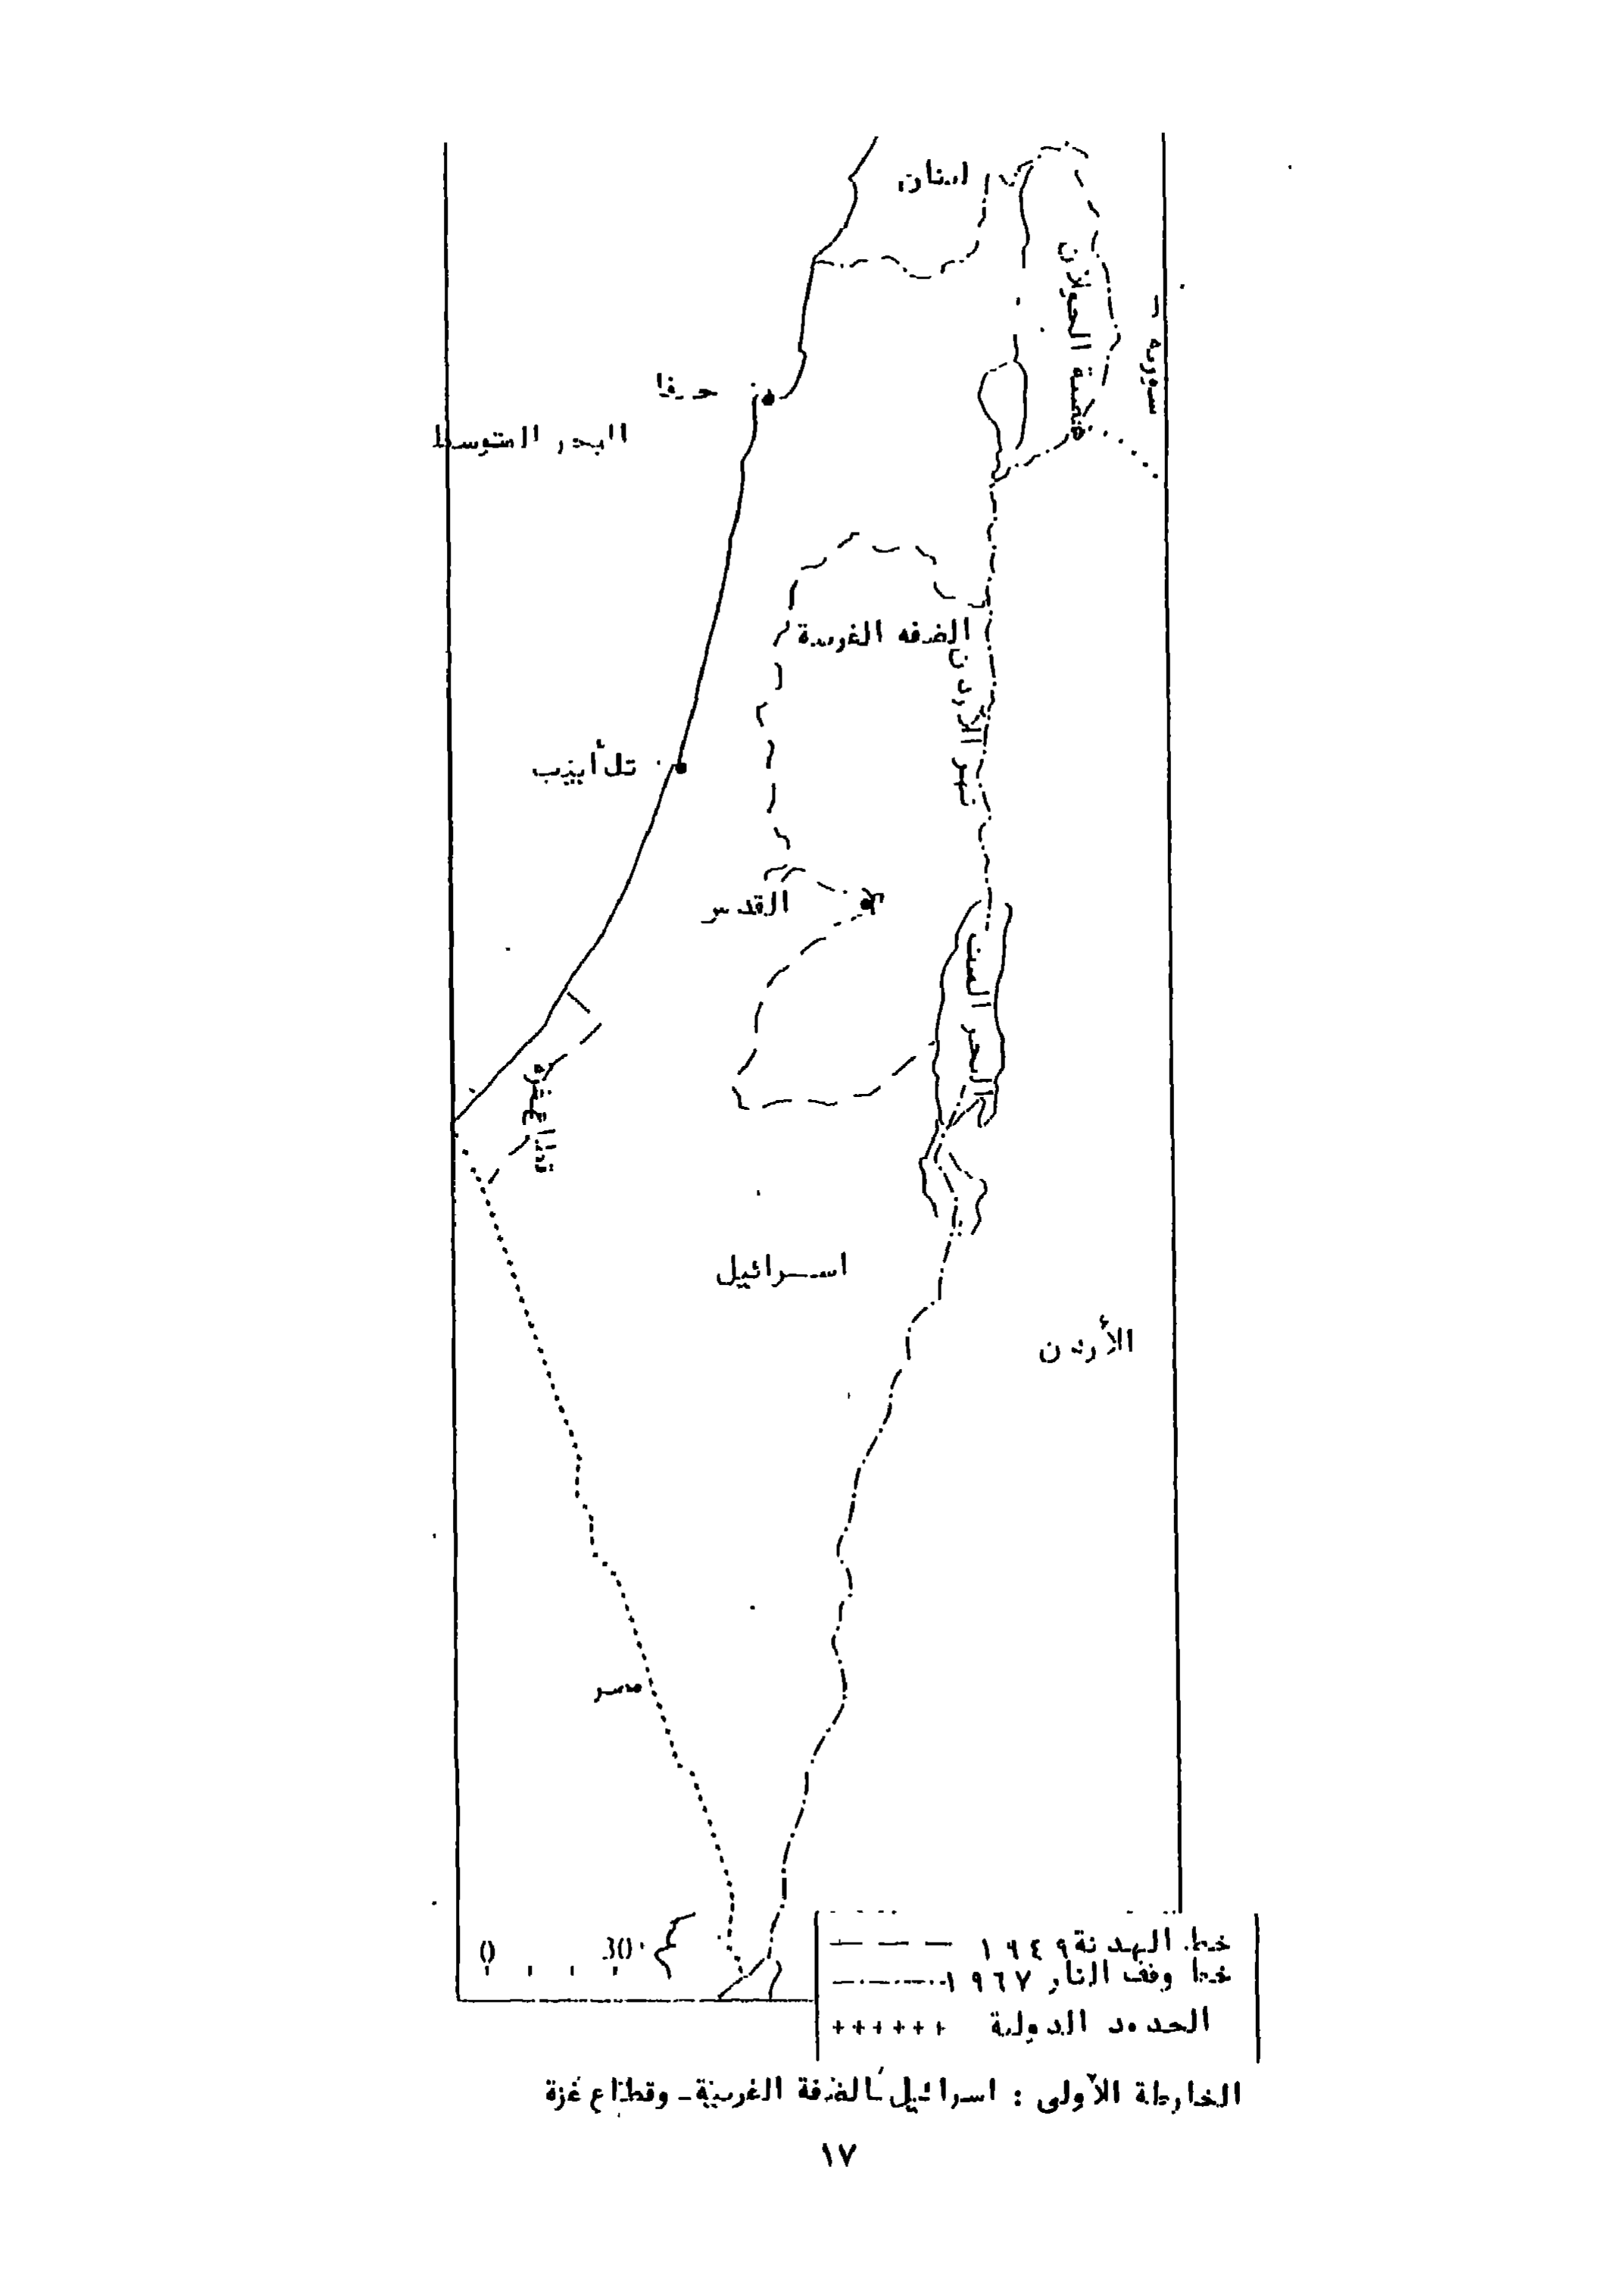 لبنان
هضبة الجولان
سورية
حيفا
البحر المتوسط
الضفة الغربية
نهر الأردن
تل أبيب
القدس
البحر الميت
قطاع غزة
اسرائيل
الأردن
مصر
0 30
خط الهدنة ١٩٤٩
خط وقف النار ١٩٦٧
الحدود الدولية
الخارطة الأولى : اسرائيل - الضفة الغربية - وقطاع غزة
١٧